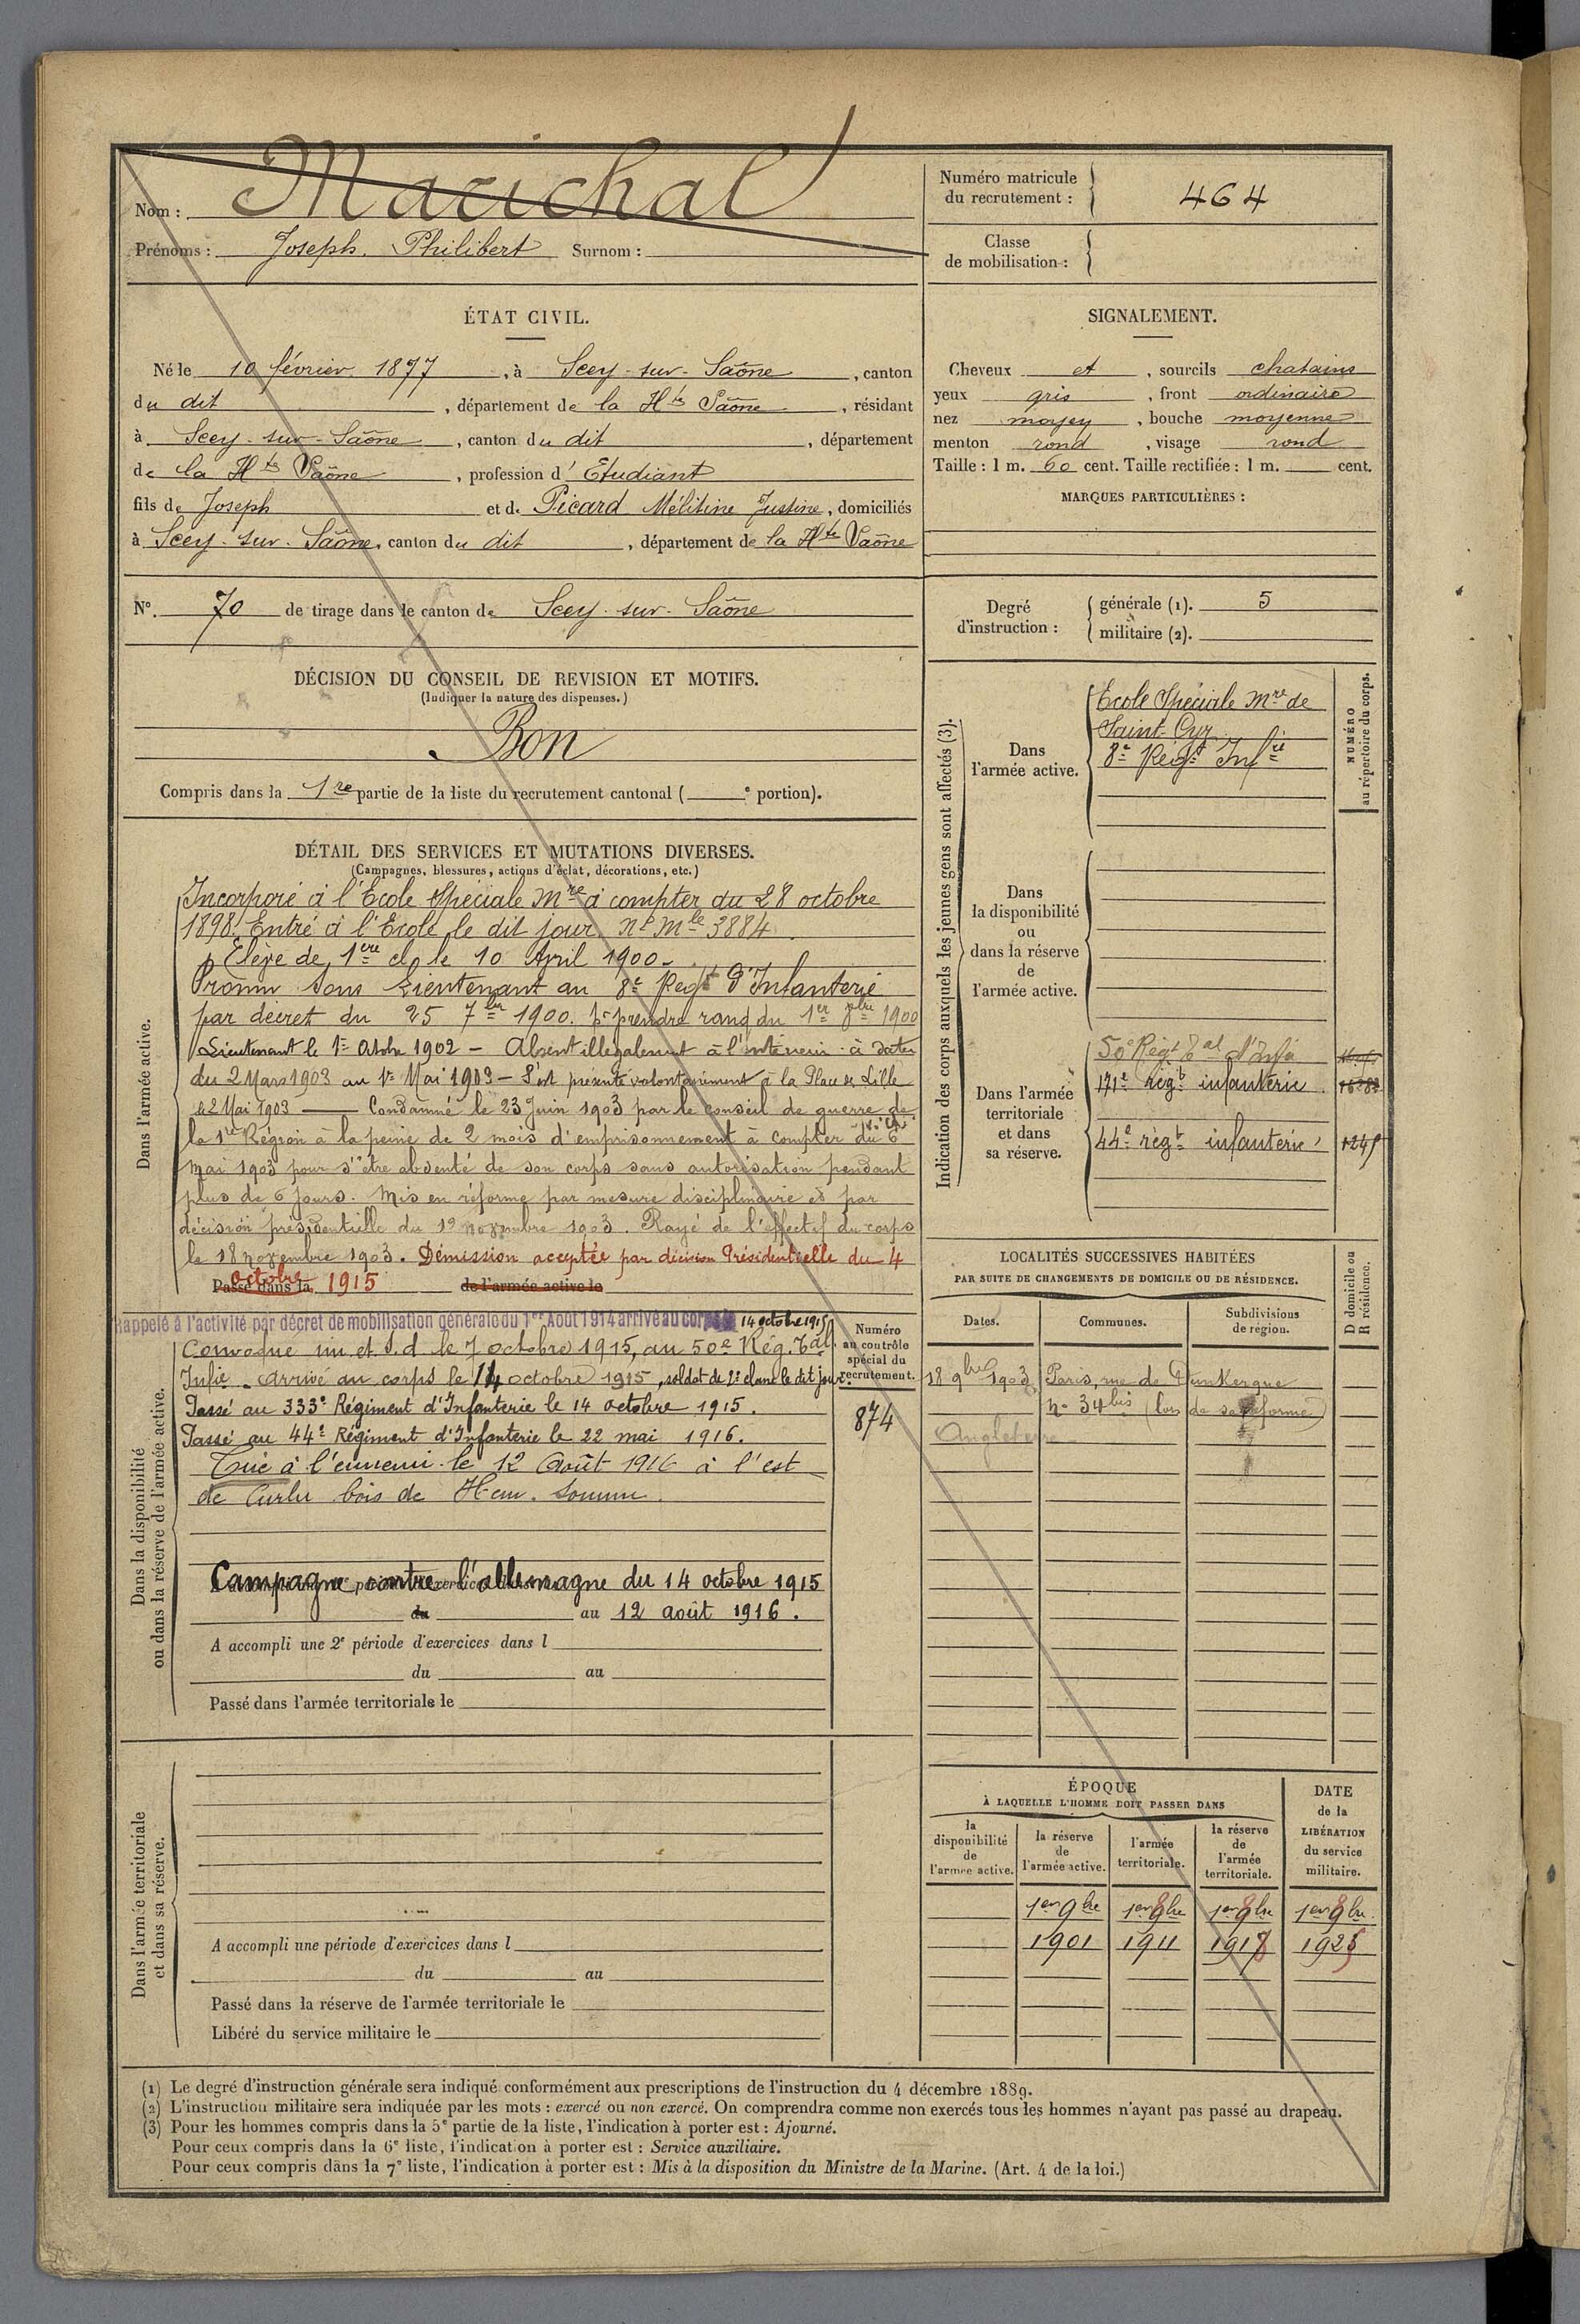 Nom : Marichal
Prénoms : Joseph. Philibert Surnom :
Numéro matricule du recrutement : 464
Classe de mobilisation :
ÉTAT CIVIL.
Né le 10 février 1877, à Scey-sur-Saône, canton
du dit, département de la Hte Saône, résidant
à Scey-sur-Saône, canton du dit, département
de la Hte Saône, profession d'Etudiant
fils de Joseph et de Picard Mélitine Justine, domiciliés
à Scey-sur-Saône, canton du dit, département de la Hte Saône
SIGNALEMENT.
Cheveux et, sourcils chatains
yeux gris, front ordinaire
nez moyen, bouche moyenne
menton rond, visage rond
Taille : 1 m. 60 cent. Taille rectifiée : 1 m. cent.
MARQUES PARTICULIÈRES :
N°. 70 de tirage dans le canton de Scey-sur-Saône
Degré d'instruction :
générale (1). 5
militaire (2).
DÉCISION DU CONSEIL DE REVISION ET MOTIFS.
(Indiquer la nature des dispenses.)
Bon
Compris dans la 1re partie de la liste du recrutement cantonal ( e portion).
DÉTAIL DES SERVICES ET MUTATIONS DIVERSES.
(Campagnes, blessures, actions d'éclat, décorations, etc.)
Dans l'armée active.
Incorporé à l'Ecole Spéciale Mre à compter du 28 octobre
1898. Entré à l'Ecole le dit jour. No Mle 3884
Elève de 1ere cl. le 10 Avril 1900.
Promu Sous Lieutenant au 8e Regt d'Infanterie
par décret du 25 7bre 1900. pr prendre rang du 1er 8bre 1900
Lieutenant le 1er Octobre 1902 - Absent illégalement à l'intérieur à dater
du 2 Mars 1903 au 1er Mai 1903 - S'est présenté volontairement à la Place de Lille
le 2 Mai 1903 - Condamné le 23 Juin 1903 par le conseil de guerre de
la 1re Région à la peine de 2 mois d'emprisonnement à compter du 6
mai 1903 pour s'être absenté de son corps sans autorisation pendant
plus de 6 jours. Mis en réforme par mesure disciplinaire et par
décision présidentielle du 19 novembre 1903. Rayé de l'effectif du corps
le 18 novembre 1903. Démission acceptée par décision Présidentielle du 4
octobre 1915
Passé dans la de l'armée active le
Rappelé à l'activité par décret de mobilisation générale du 1er Août 1914 arrivé au corps le 14 octobre 1915
Dans la disponibilité
ou dans la réserve de l'armée active.
Convoqué im. et S.d le 7 octobre 1915, au 50e Rég. Tal
Infie. Arrivé au corps le 14 octobre 1915, soldat de 2e classe le dit jour.
Passé au 333e Régiment d'Infanterie le 14 octobre 1915.
Passé au 44e Régiment d'Infanterie le 22 mai 1916.
Tué à l'ennemi le 12 Août 1916 à l'est
de Curlu bois de Hem. Somme.
Campagne contre l'allemagne du 14 octobre 1915
du au 12 août 1916.
A accompli une 2e période d'exercices dans l
du au
Passé dans l'armée territoriale le
Numéro
au contrôle
spécial du
recrutement.
874
Dans l'armée territoriale
et dans sa réserve.
A accompli une période d'exercices dans l
du au
Passé dans la réserve de l'armée territoriale le
Libéré du service militaire le
Indication des corps auxquels les jeunes gens sont affectés (3).
NUMÉRO
au répertoire du corps.
Dans
l'armée active.
Ecole Spéciale Mre de
Saint-Cyr
8e Régt Infie
Dans
la disponibilité
ou
dans la réserve
de
l'armée active.
Dans l'armée
territoriale
et dans
sa réserve.
50e Régt Tal d'Infie
171e régt infanterie
44e régt infanterie
LOCALITÉS SUCCESSIVES HABITÉES
PAR SUITE DE CHANGEMENTS DE DOMICILE OU DE RÉSIDENCE.
D domicile ou
R résidence.
Dates. Communes. Subdivisions de région.
18 9bre 1903 Paris, rue de Dunkerque
no 34 bis (lors de sa réforme)
Angleterre
ÉPOQUE
À LAQUELLE L'HOMME DOIT PASSER DANS
la disponibilité de l'armée active.
la réserve de l'armée active.
l'armée territoriale.
la réserve de l'armée territoriale.
DATE de la LIBÉRATION du service militaire.
1er 9bre 1er 9bre 1er 9bre 1er 9bre
1901 1911 1918 1925
(1) Le degré d'instruction générale sera indiqué conformément aux prescriptions de l'instruction du 4 décembre 1889.
(2) L'instruction militaire sera indiquée par les mots : exercé ou non exercé. On comprendra comme non exercés tous les hommes n'ayant pas passé au drapeau.
(3) Pour les hommes compris dans la 5e partie de la liste, l'indication à porter est : Ajourné.
Pour ceux compris dans la 6e liste, l'indication à porter est : Service auxiliaire.
Pour ceux compris dans la 7e liste, l'indication à porter est : Mis à la disposition du Ministre de la Marine. (Art. 4 de la loi.)